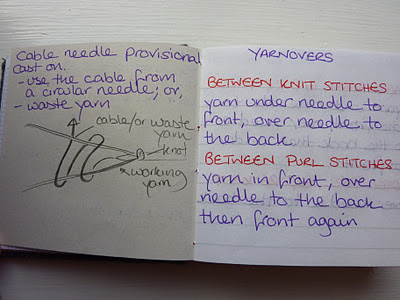 cable needle provisional
cast on.
- use the cable from
a cirular needle; or,
- waste yarn
cable/or waste
yarn
knot
working
yarn
YARNOVERS
BETWEEN KNIT STITCHES
yarn under needle to
front, over needle to
the back
BETWEEN PURL STITCHES
yarn in front, over
needle to the back
then front again